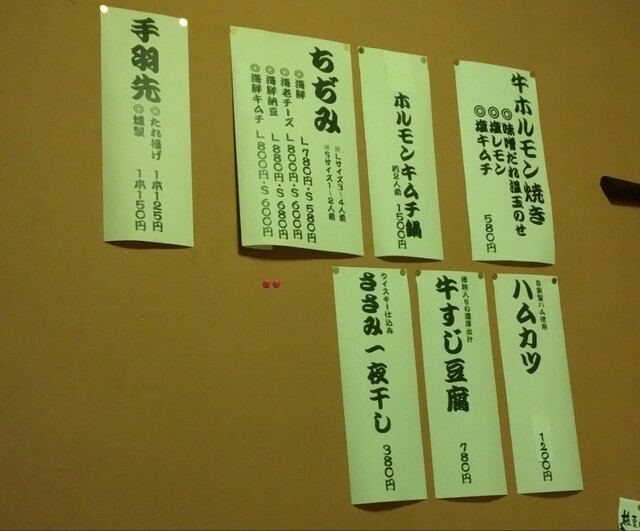 牛ホルモン焼き
◎味噌だれ温玉のせ
◎塩レモン
◎塩キムチ
580円
ホルモンキムチ鍋
約2人前
1500円
ちぢみ
※Lサイズ3~4人前
※Sサイズ1~2人前
◎海鮮 L780円・S580円
◎海老チーズ L800円・S600円
◎海鮮納豆 L880円・S680円
◎海鮮キムチ L800円・S600円
手羽先
◎たれ揚げ 1本125円
◎燻製 1本150円
自家製ハム使用
ハムカツ
1200円
牛すじ豆腐
780円
ウイスキー仕込み
ささみ一夜干し
380円